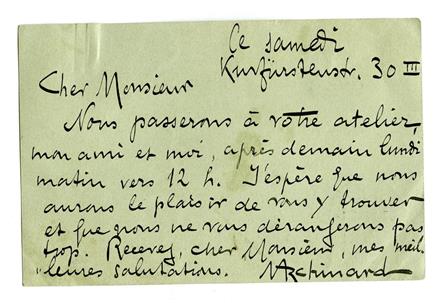 Ce samedi
Kurfürstenstr. 30 III
Cher Monsieur
Nous passerons à votre atelier,
mon ami et moi, après demain lundi
matin vers 12 h. J'espère que nous
aurons le plaisir de vous y trouver
et que nous ne vous dérangerons pas
trop. Recevez, cher Monsieur, mes meil-
"leures salutations. Archinard